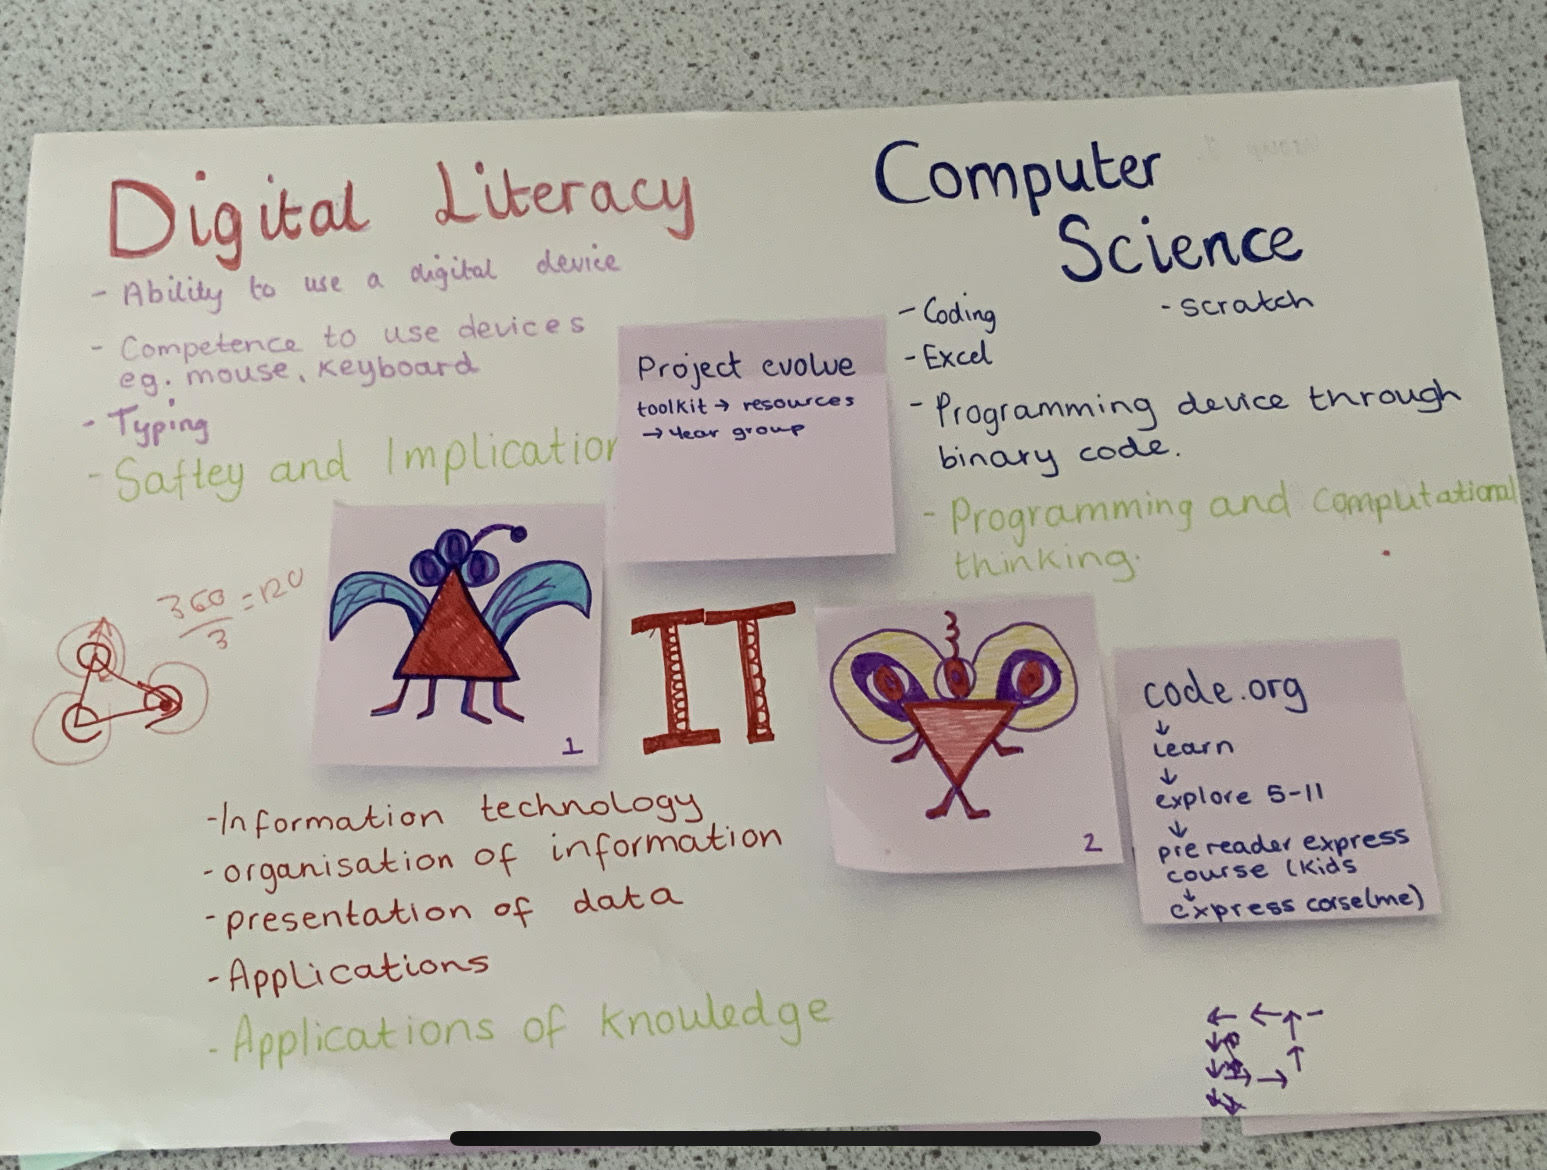 Digital Literacy
- Ability to use a digital device
- Competence to use devices
eg. mouse, keyboard
- Typing
- Saftey and Implication
Computer
Science
- Coding
- scratch
- Excel
- Programming device through
binary code.
- Programming and computational
thinking.
Project evolve
toolkit → resources
→ year group
360
3
= 120
1
IT
2
code.org
↓
learn
↓
explore 5-11
↓
pre reader express
course (kids
↓
express corse(me)
- Information technology
- organisation of information
- presentation of data
- Applications
- Applications of knowledge